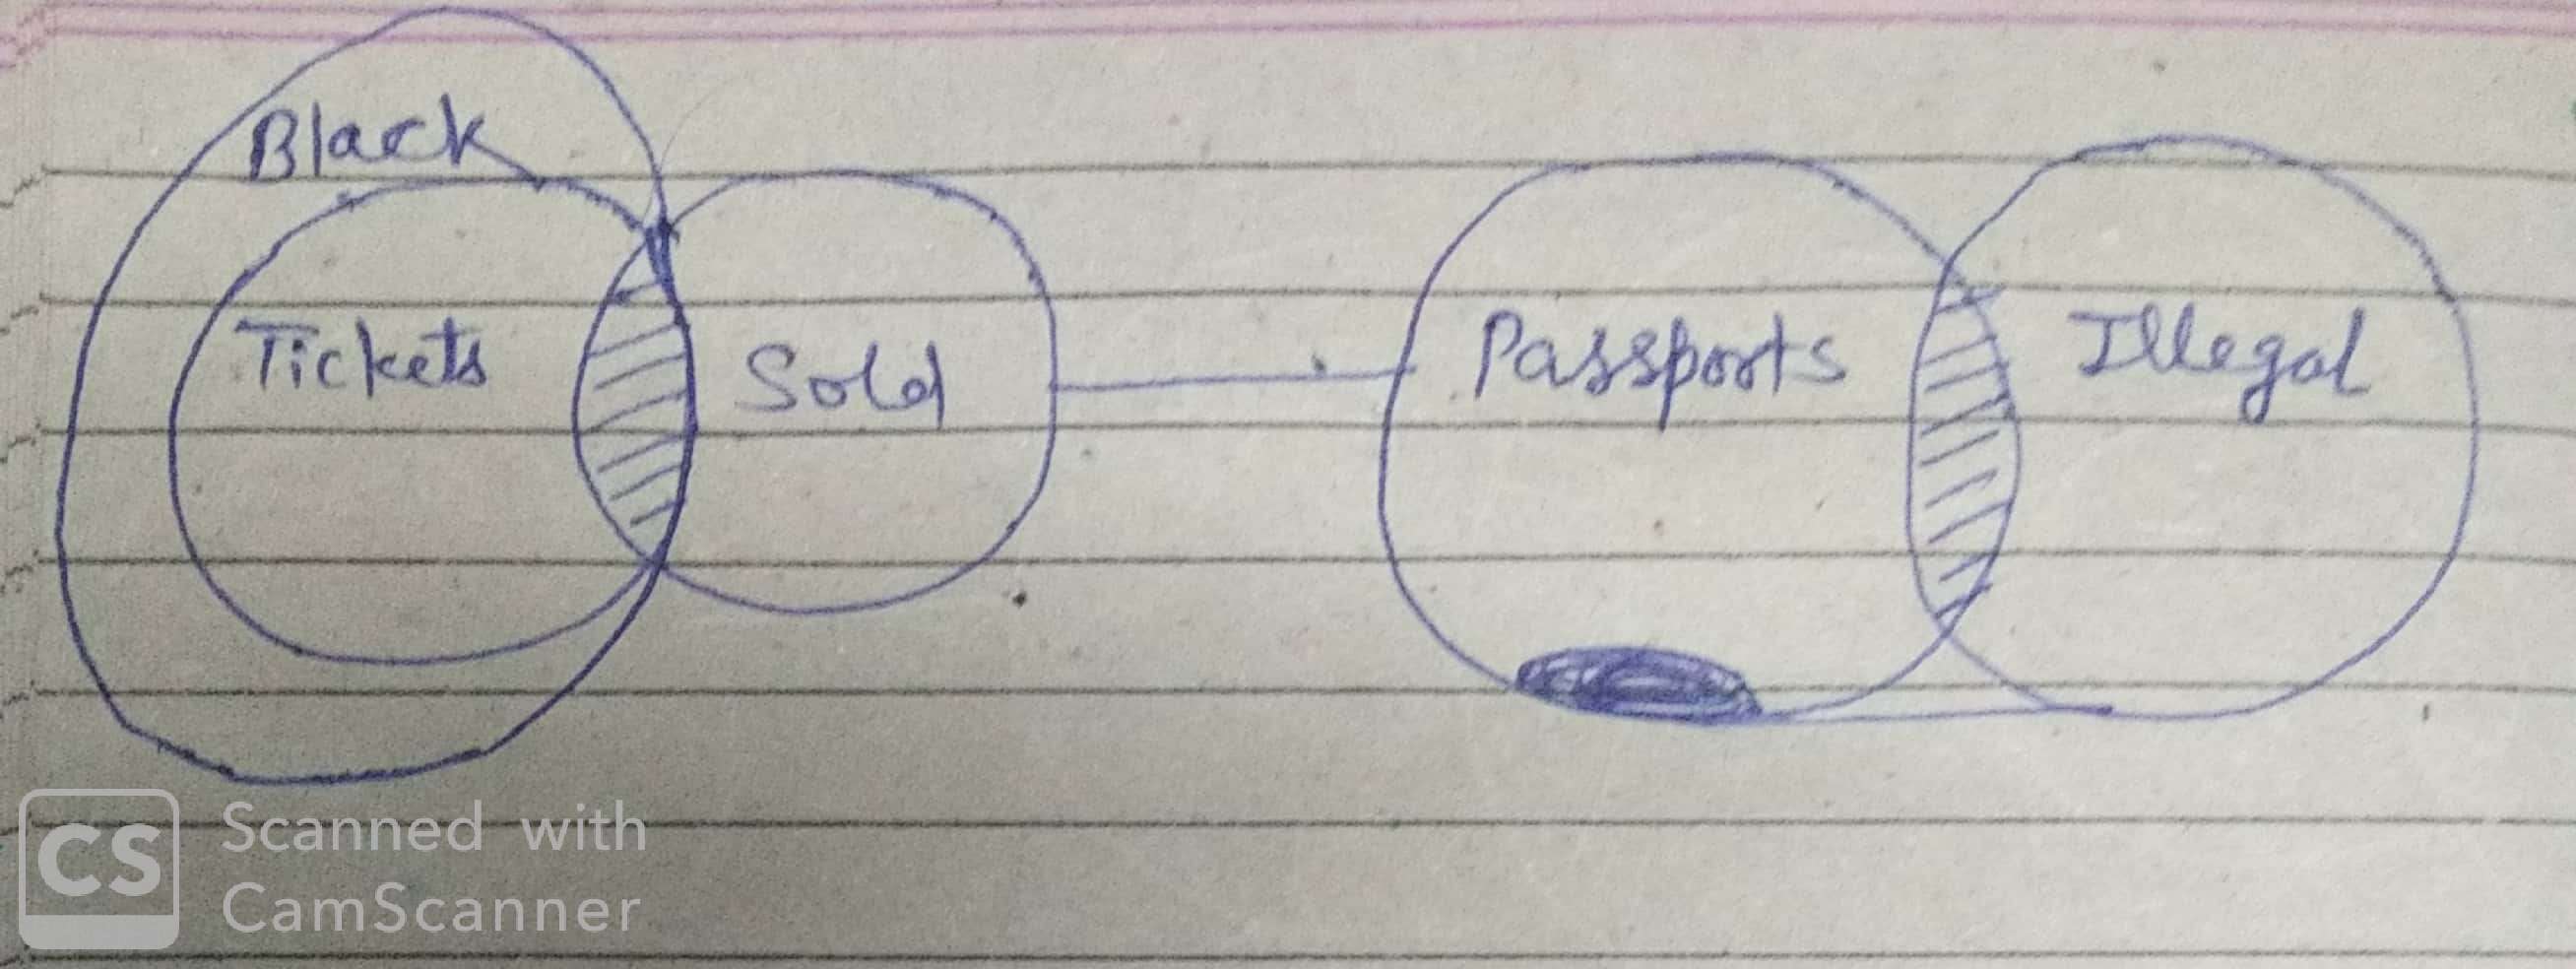 Black
Tickets Sold Passports Illegal
CS Scanned with
CamScanner